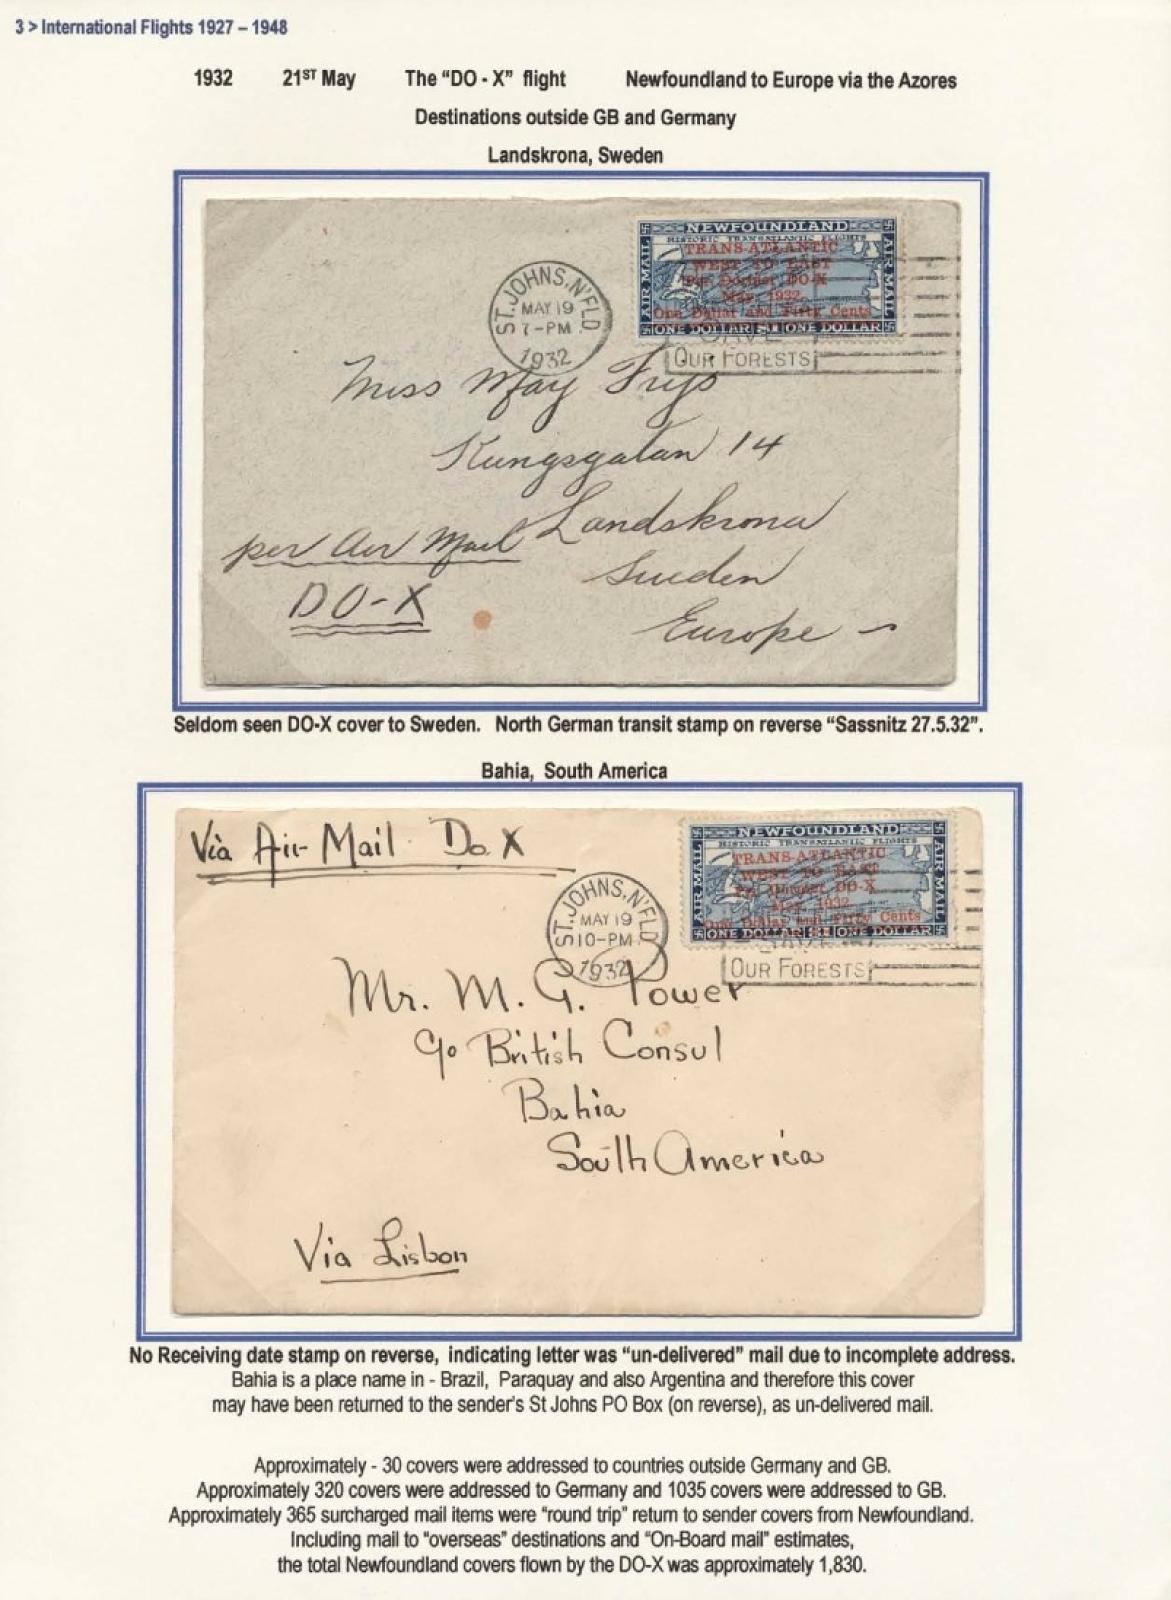 3 > International Flights 1927 – 1948
1932 21ST May The "DO - X" flight Newfoundland to Europe via the Azores
Destinations outside GB and Germany
Landskrona, Sweden
NEWFOUNDLAND
HISTORIC TRANSATLANTIC FLIGHTS
AIR MAIL
AIR MAIL
TRANS-ATLANTIC
WEST TO EAST
Per Dornier DO-X
May, 1932.
One Dollar and Fifty Cents
ONE DOLLAR $1 ONE DOLLAR
ST. JOHNS, N'FLD.
MAY 19
7-PM
1932
SAVE
OUR FORESTS
Miss May
Kungsgatan 14
Landskrona
per Air Mail
Sweden
DO-X
Europe
Seldom seen DO-X cover to Sweden. North German transit stamp on reverse "Sassnitz 27.5.32".
Bahia, South America
Via Air-Mail Do.X
NEWFOUNDLAND
HISTORIC TRANSATLANTIC FLIGHTS
AIR MAIL
AIR MAIL
TRANS-ATLANTIC
WEST TO EAST
Per Dornier DO-X
May, 1932.
One Dollar and Fifty Cents
ONE DOLLAR $1 ONE DOLLAR
ST. JOHNS, N'FLD.
MAY 19
10-PM
1932
SAVE
OUR FORESTS
Mr. M. G. Power
c/o British Consul
Bahia
South America
Via Lisbon
No Receiving date stamp on reverse, indicating letter was "un-delivered" mail due to incomplete address.
Bahia is a place name in - Brazil, Paraquay and also Argentina and therefore this cover
may have been returned to the sender's St Johns PO Box (on reverse), as un-delivered mail.
Approximately - 30 covers were addressed to countries outside Germany and GB.
Approximately 320 covers were addressed to Germany and 1035 covers were addressed to GB.
Approximately 365 surcharged mail items were "round trip" return to sender covers from Newfoundland.
Including mail to "overseas" destinations and "On-Board mail" estimates,
the total Newfoundland covers flown by the DO-X was approximately 1,830.